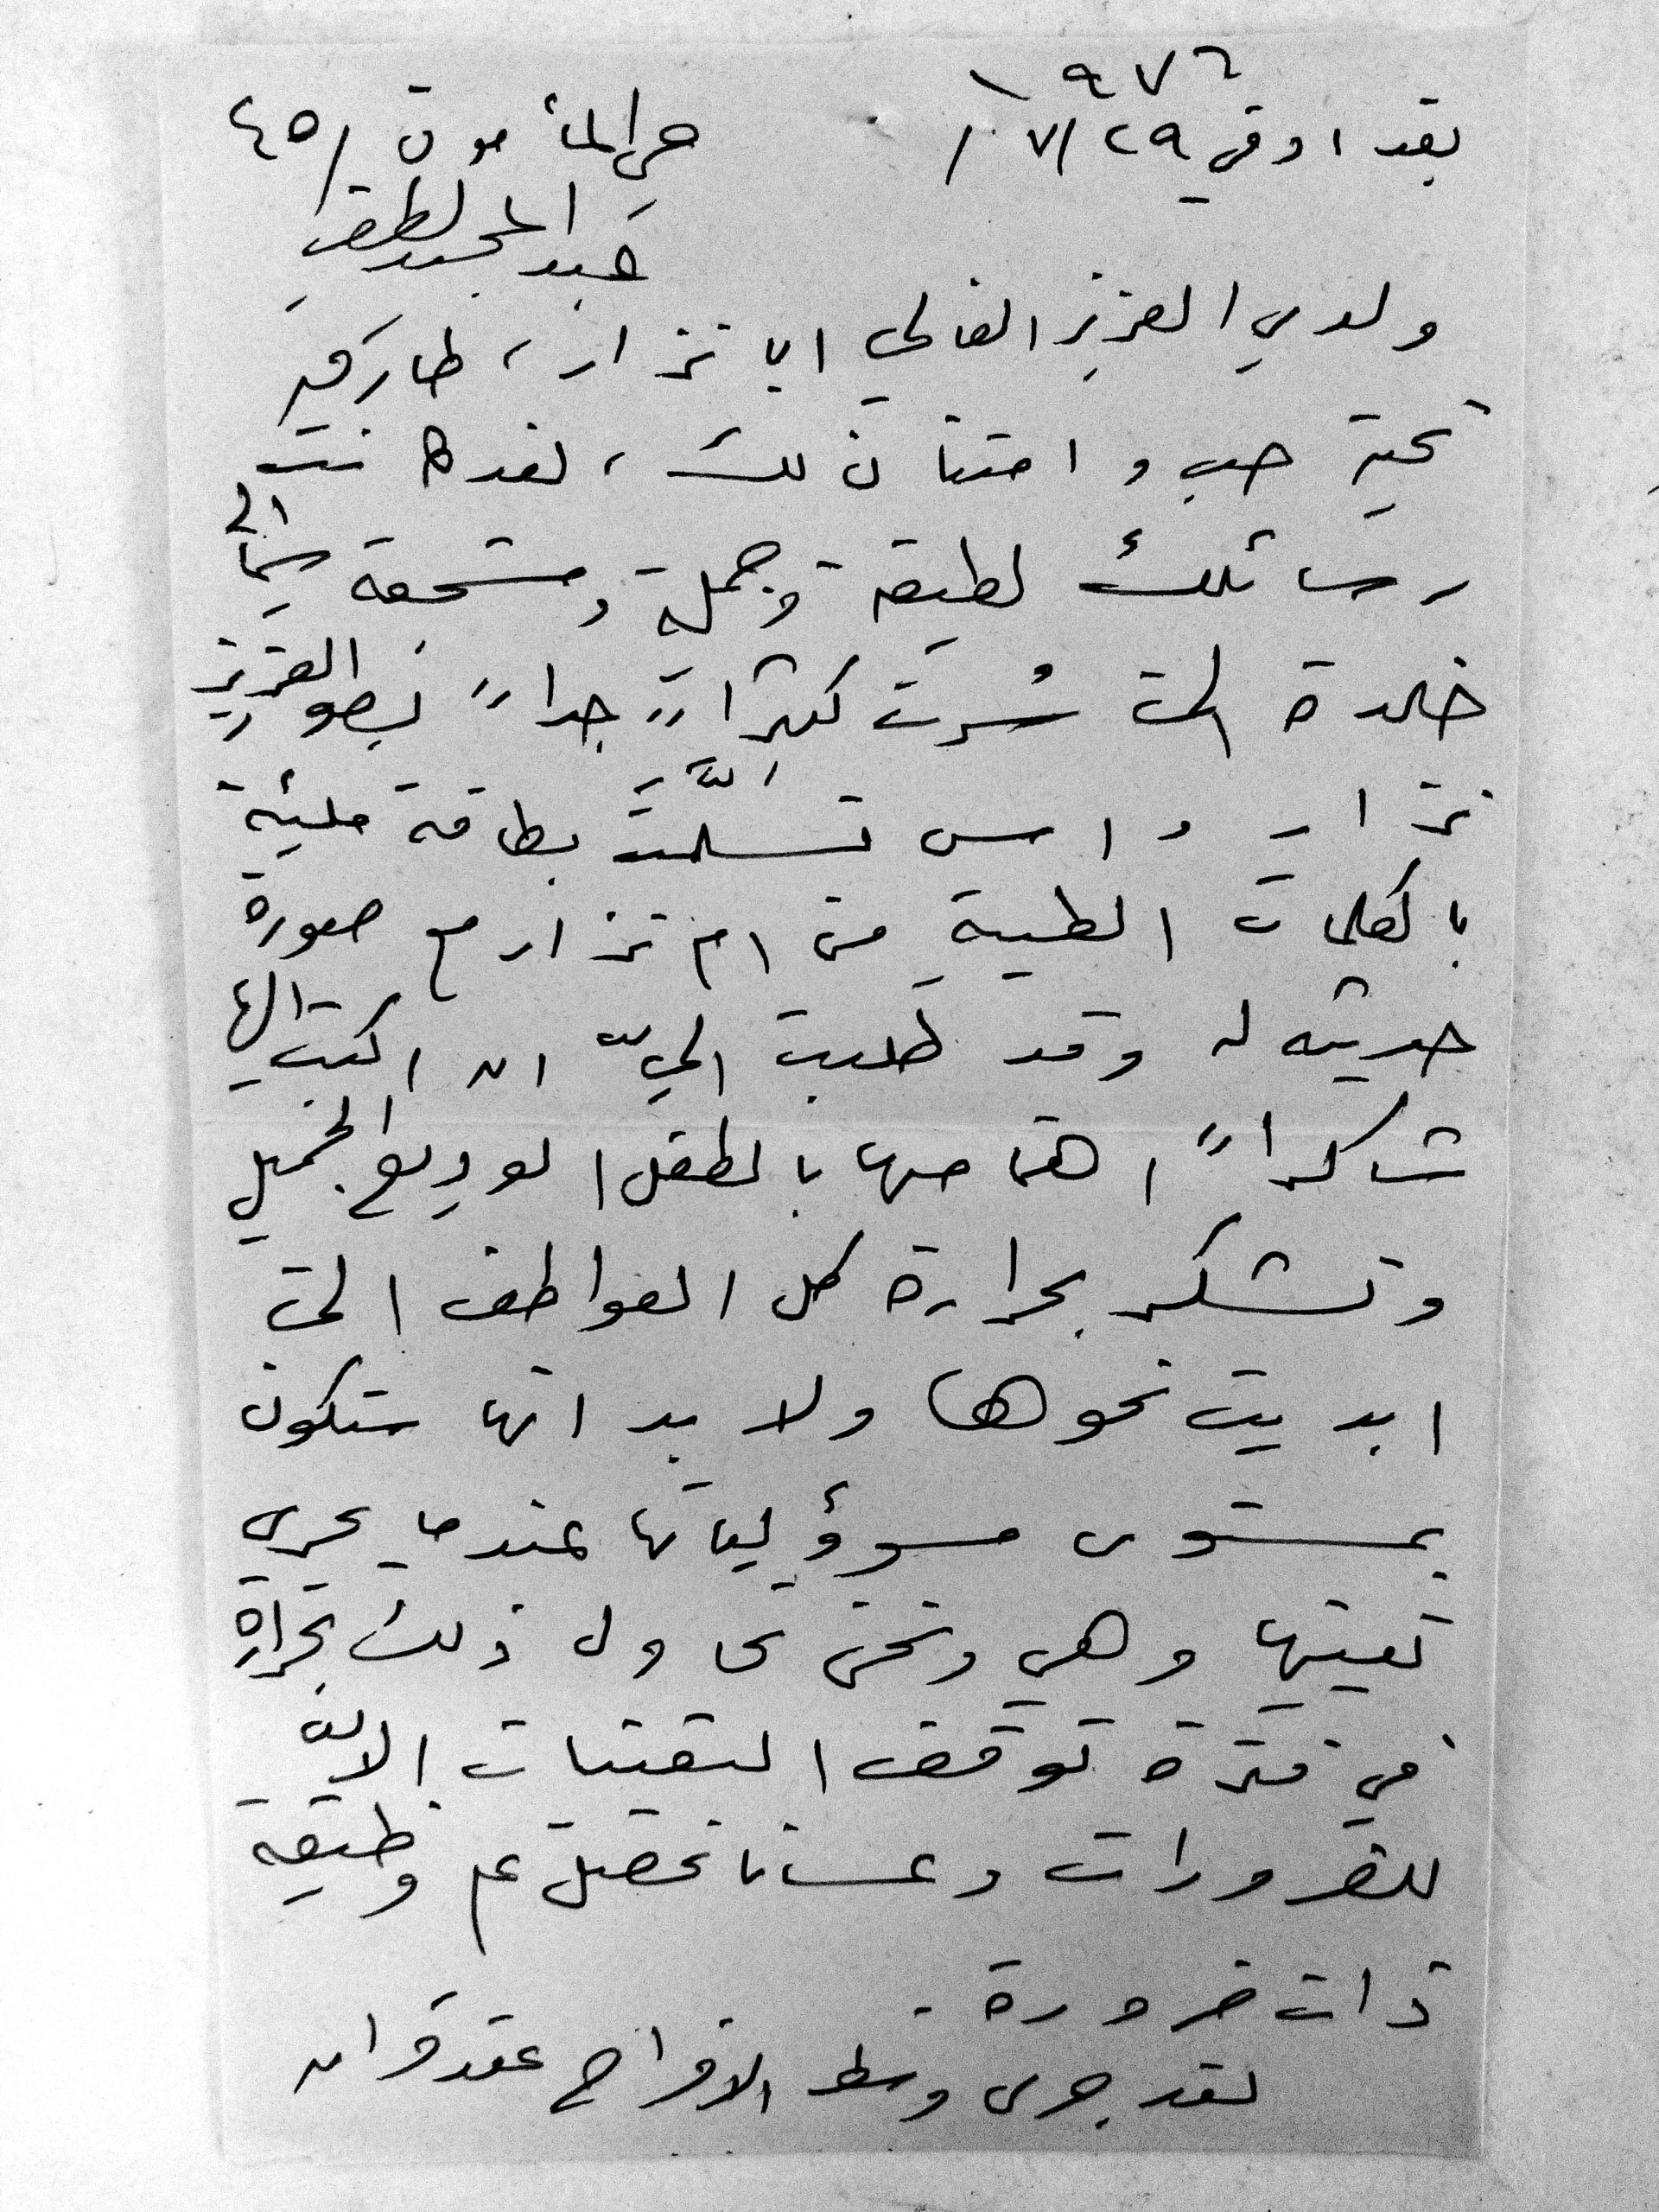 ١٩٧٦
بغداد في ٢٩/٧/ حي المأمون ٤٥/
عبد المجيد لطفي
ولدي العزيز الغالي ابا نزار، طارق
تحية حب وامتنان لك، لقد كانت
رسائلك لطيفة وجميلة ومشجعة سيما الى
خلدة التي سُرت كثيراً جداً بصور العزيز
نزار وامس تسلمتْ بطاقة مليئة
بالكلمات الطيبة من ام نزار مع صورة
حديثه له وقد طلبت اليّ ان اكتب اليها
شاكراً اهتمامها بالطفل الوديع الجميل
وتشكر بحرارة كل العواطف التي
ابديت نحوها ولا بد انها ستكون
بمستوى مسؤولياتها عندما يجري
تعيينها وهي ونحن نحاول ذلك بحرارة
في فترة توقف التعيينات الآن الّا
للضرورات وعسانا نحصل على وظيفة
ذات ضرورة.
لقد جرى وسط الافراح عقد قران